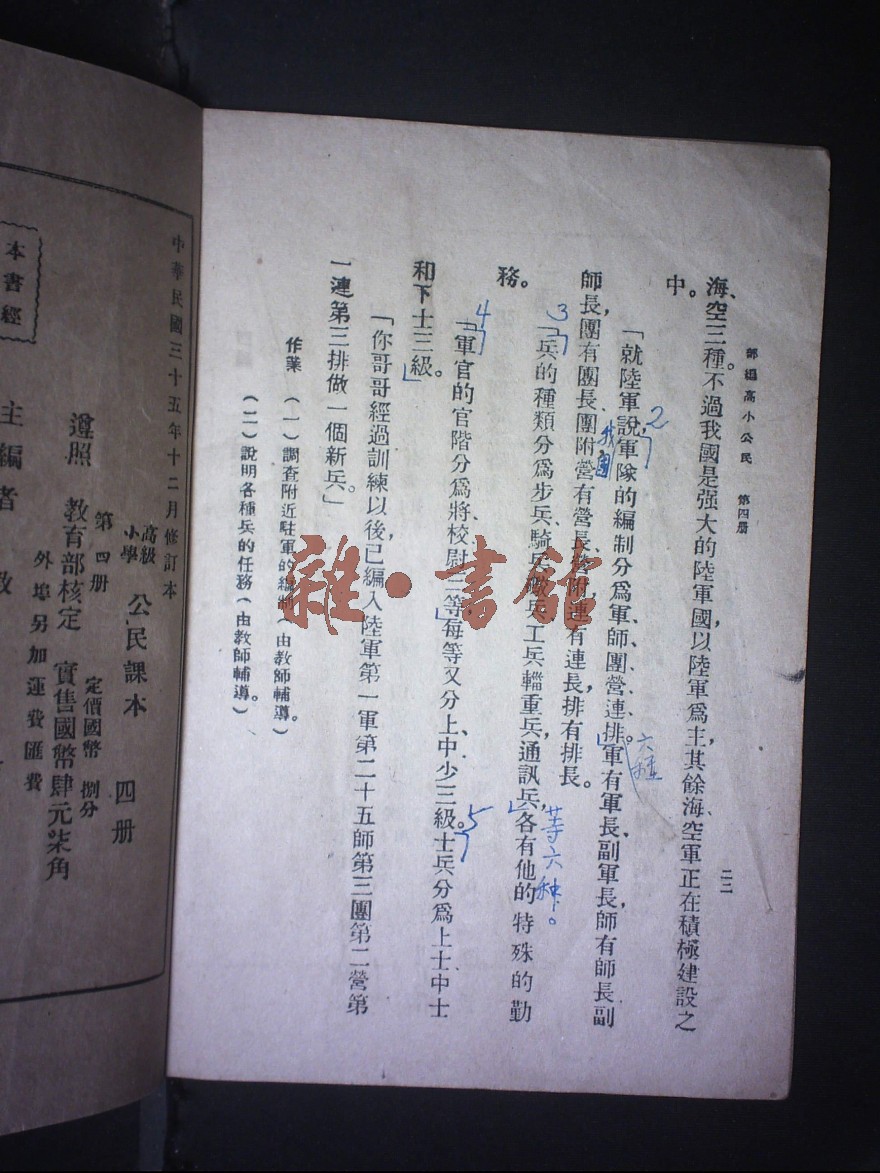 部編高小公民　第四册
二二
海、空三種。不過我國是强大的陸軍國，以陸軍爲主，其餘海、空軍正在積極建設之
中。
「就陸軍說，軍隊的編制分爲軍、師、團、營、連、排。軍有軍長、副軍長，師有師長、副
師長，團有團長、團附，營有營長、營附，連有連長，排有排長。
「兵的種類分爲步兵、騎兵、砲兵、工兵、輜重兵、通訊兵，各有他的特殊的勤
務。
「軍官的官階分爲將、校、尉三等，每等又分上、中、少三級。士兵分爲上士、中士
和下士三級。
「你哥哥經過訓練以後，已編入陸軍第一軍第二十五師第三團第二營第
一連第三排做一個新兵。」
作業　（一）調查附近駐軍的編制（由教師輔導）。
（二）說明各種兵的任務（由教師輔導）。
2
我國
六種
3
等六种。
4
5
雜·書館
中華民國三十五年十二月修訂本
高級小學　公民課本　四册
第四册
定價國幣　捌分
遵照　教育部核定　實售國幣肆元柒角
外埠另加運費匯費
主編者
本書經